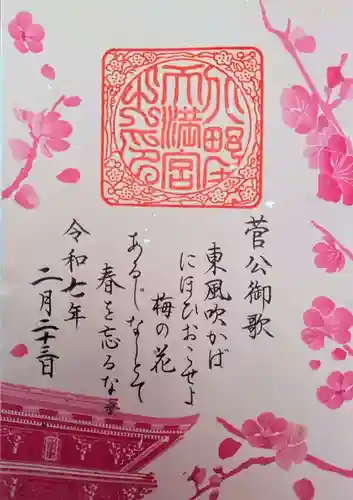 北野天満宮
菅公御歌
東風吹かば
にほひおこせよ
梅の花
あるじなしとて
春を忘るな
令和七年
二月二十三日